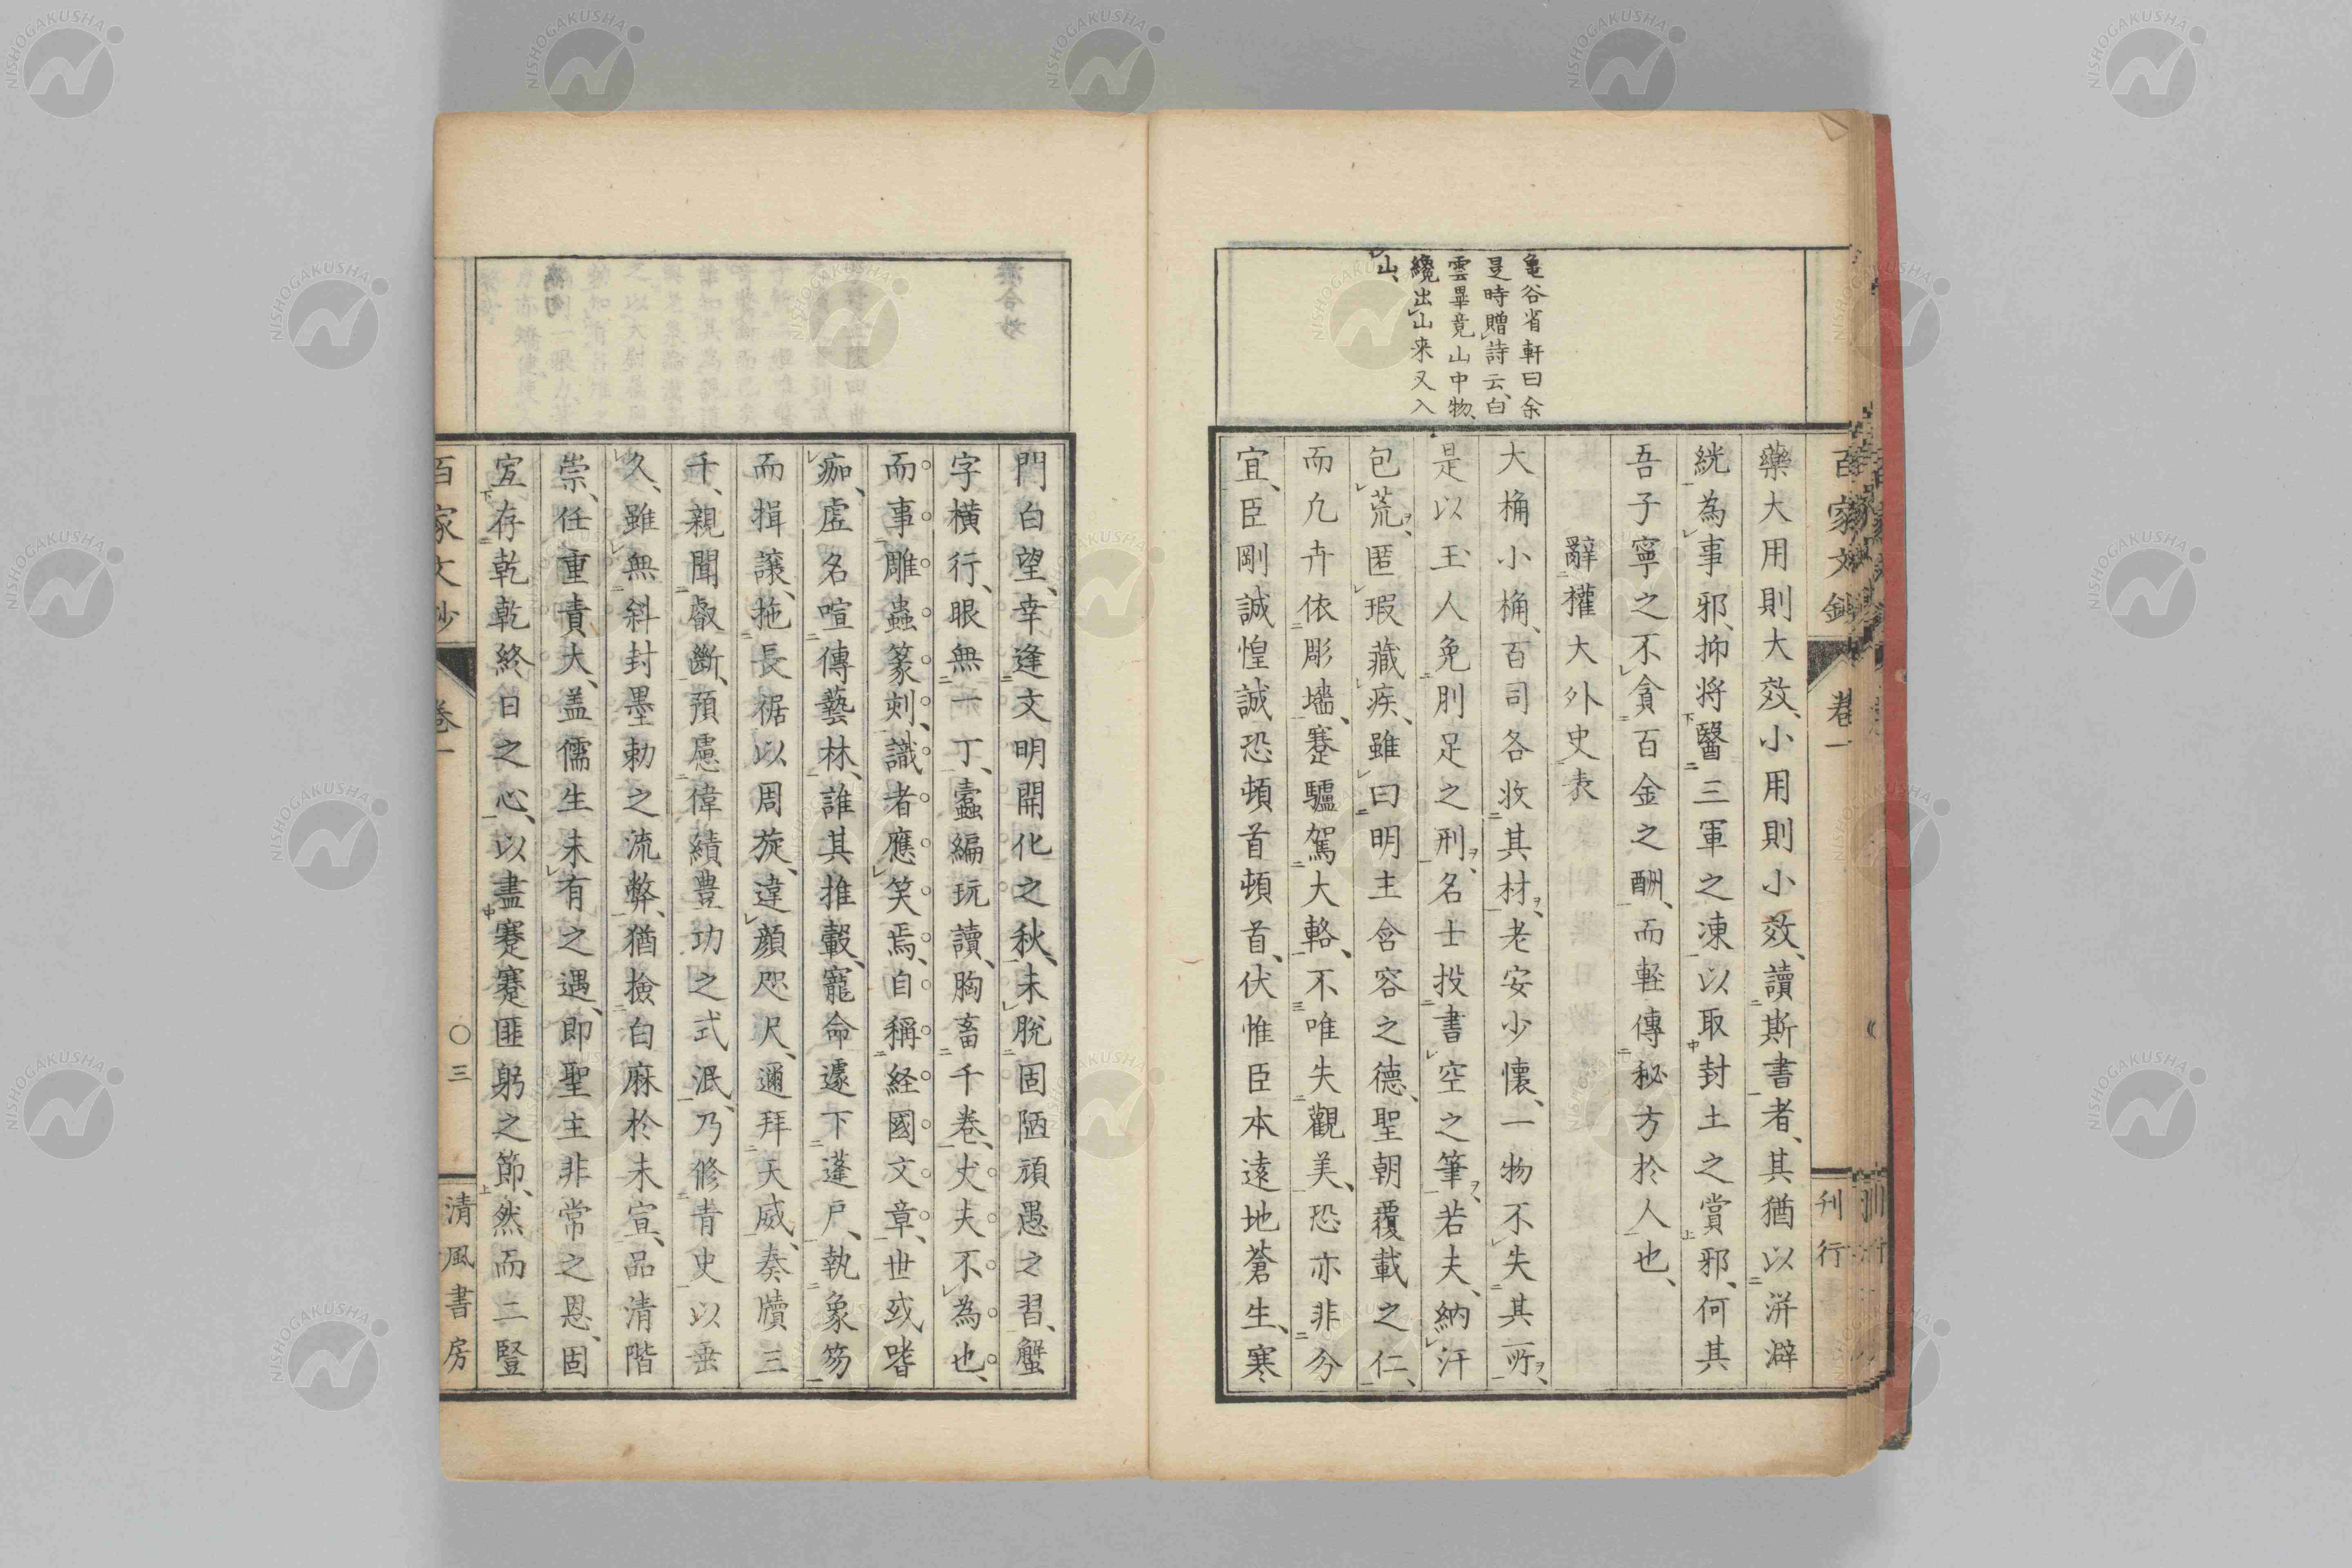 百家文鈔
卷一
刊行
藥大用則大效、小用則小效、讀斯書者、其猶以洴澼
絖為事邪、抑将醫三軍之凍以取封土之賞邪、何其
吾子寧之不貪百金之酬、而軽傳秘方於人也、
辭權大外史表
大桷小桷、百司各收其材、老安少懷、一物不失其所、
是以玉人免刖足之刑、名士投書空之筆、若夫、納汗
包荒、匿瑕藏疾、雖曰明主含容之德、聖朝覆載之仁、
而凢卉依彫墻、蹇驢駕大輅、不唯失觀美、恐亦非分
宜、臣剛誠惶誠恐頓首頓首、伏惟臣本遠地蒼生、寒
亀谷省軒曰余
是時贈詩云、白
雲畢竟山中物、
纔出山来又入
山、
門白望、幸逢文明開化之秋、未脫固陋頑愚之習、蟹
字横行、眼無一丁、蠹編玩讀、胸畜千卷、丈夫不為也、
而事雕蟲篆刺、識者應笑焉、自稱経國文章、世或嗜
痂、虚名喧傳藝林、誰其推轂、寵命遽下蓬戸、執象笏
而揖讓、拖長裾以周旋、違顔咫尺、邇拜天威、奏牘三
千、親聞叡斷、預慮偉績豊功之式泯、乃修青史以垂
久、雖無斜封墨勅之流弊、猶撿白麻於未宣、品清階
崇、任重責大、盖儒生未有之遇、即聖主非常之恩、固
宜存乾乾終日之心、以盡蹇蹇匪躬之節、然而二豎
百家文鈔
卷一
〇三
清風書房
NISHOGAKUSHA